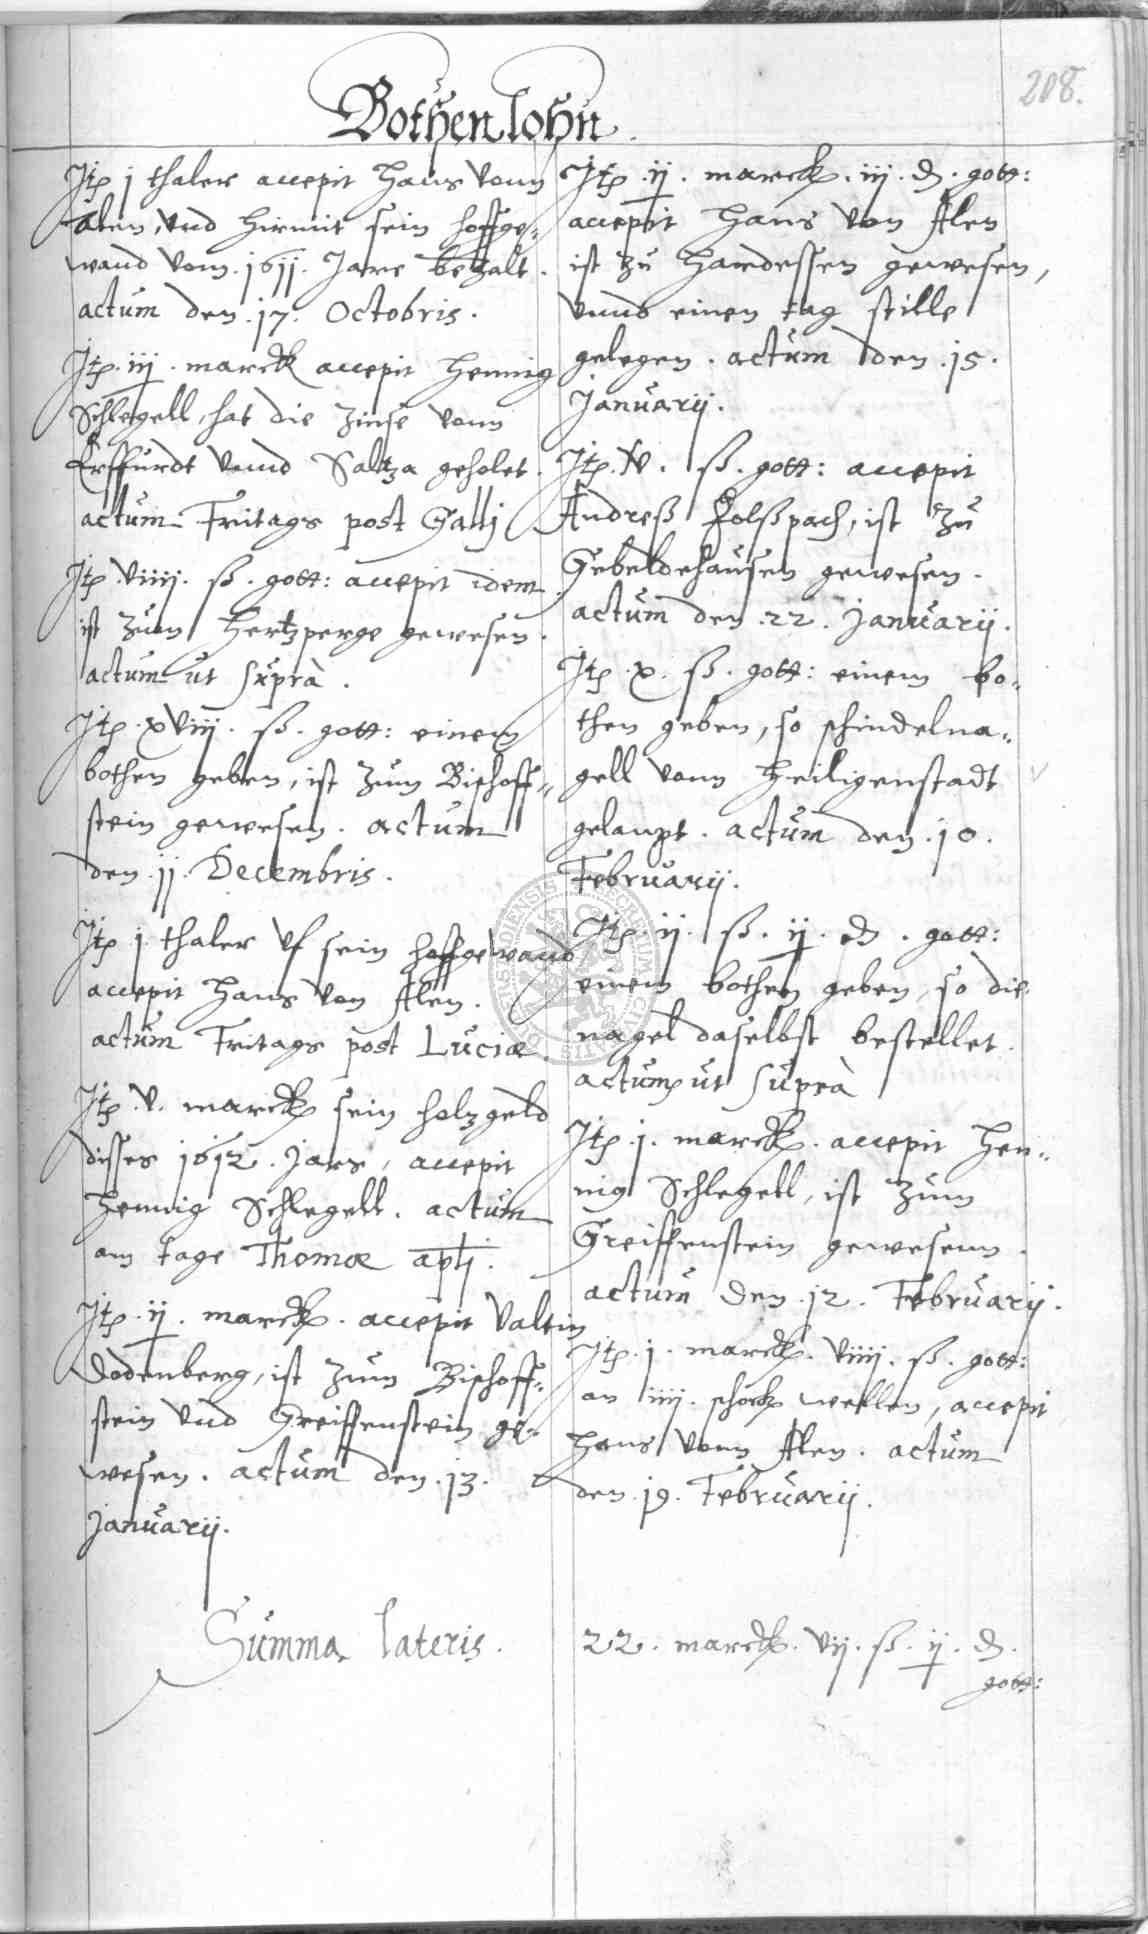 208.
Bothen lohn.
Itp j thaler accepit Hans vonn
Alen, vnd hirmit sein hoffge-
wand vom 16jj. Jare bezalt.
actum den .17. Octobris.
Itp. iij. marck accepit Hennig
Schlegell, hat die Zinse vonn
Erffurdt vnnd Saltza geholet.
actum Fritags post Gallj
Itp viiij. ß. gott: accepit idem
ist zum Hertzperge gewesen.
actum ut suprà.
Itp. xviij. ß. gott: einem
bothen geben, ist zum Bischoff-
stein gewesen. actum
den jj. Decembris.
Itp j. thaler vf sein hoffgewand
accepit Hans von Alen.
actum Fritags post Luciæ.
Itp. v. marck sein holzgeld
disses 1612. Jars, accepit
Hennig Schlegell. actum
am tage Thomæ aptj.
Itp. ij. marck. accepit Valtin
Dodenberg, ist zum Bischoff-
stein vnd Greiffenstein ge-
wesen. actum den .13.
Januarij.
Itp. ij. marck. iij. d. gott:
accepit Hans von Alen
ist zu Hardessen gewesen,
vnnd einen tag stille
gelegen. actum den .15.
Januarij.
Itp. v. ß. gott: accepit
Andreß Holßpach, ist zu
Gebeldehausen gewesen.
actum den .22. Januarij.
Itp. x. ß. gott: einem bo-
then geben, so schindelna-
gell vonn Heiligenstadt
gelangt. actum den .10.
Februarij.
Itp. ij. ß. ij. d. gott:
einem bothen geben, so die
nagel daselbst bestellet.
actum ut suprà
Itp. j. marck. accepit Hen-
nig Schlegell, ist zum
Greiffenstein gewesenn.
actum den .12. Februarij.
Itp. j. marck. viiij. ß. gott:
an iiij. schock wellen, accepit
Hans vonn Alen. actum
den .19. Februarij.
Summa lateris. 22. marck. vij. ß. ij. d.
gott: